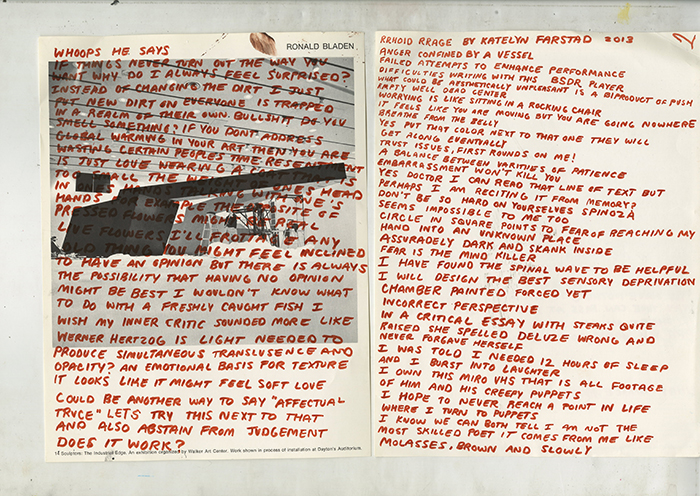 RONALD BLADEN
WHOOPS HE SAYS
IF THINGS NEVER TURN OUT THE WAY YOU
WANT WHY DO I ALWAYS FEEL SURPRISED?
INSTEAD OF CHANGING THE DIRT I JUST
PUT NEW DIRT ON EVERYONE IS TRAPPED
IN A REALM OF THEIR OWN. BULLSHIT DO YOU
SMELL SOMETHING? IF YOU DON'T ADDRESS
GLOBAL WARMING IN YOUR ART THEN YOU ARE
WASTING CERTAIN PEOPLES TIME. RESENTMENT
IS JUST LOVE WEARING A COAT THAT IS
TOO SMALL THE
IN ONES HANDS ONE'S HEAD
HANDS FOR EXAMPLE THE OPPOSITE OF
PRESSED FLOWERS MIGHT
LIVE FLOWERS I'LL FROTTAGE ANY
OLD THING YOU MIGHT FEEL INCLINED
TO HAVE AN OPINION BUT THERE IS ALWAYS
THE POSSIBILITY THAT HAVING NO OPINION
MIGHT BE BEST I WOULDN'T KNOW WHAT
TO DO WITH A FRESHLY CAUGHT FISH I
WISH MY INNER CRITIC SOUNDED MORE LIKE
WERNER HERTZOG IS LIGHT NEEDED TO
PRODUCE SIMULTANEOUS TRANSLUSENCE AND
OPACITY? AN EMOTIONAL BASIS FOR TEXTURE
IT LOOKS LIKE IT MIGHT FEEL SOFT LOVE
COULD BE ANOTHER WAY TO SAY "AFFECTUAL
TRUCE" LETS TRY THIS NEXT TO THAT
AND ALSO ABSTAIN FROM JUDGEMENT
DOES IT WORK?
14 Sculptors: The Industrial Edge. An exhibition organized by Walker Art Center. Work shown in process of installation at Dayton's Auditorium.
2
RRHOID RRAGE BY KATELYN FARSTAD 2013
ANGER CONFINED BY A VESSEL
FAILED ATTEMPTS TO ENHANCE PERFORMANCE
DIFFICULTIES WRITING WITH THIS BSDR PLAYER
WHAT COULD BE AESTHETICALLY UNPLEASANT IS A BIPRODUCT OF PUSH
EMPTY WELL DEAD CENTER
WORRYING IS LIKE SITTING IN A ROCKING CHAIR
IT FEELS LIKE YOU ARE MOVING BUT YOU ARE GOING NOWHERE
BREATHE FROM THE BELLY
YES PUT THAT COLOR NEXT TO THAT ONE THEY WILL
GET ALONG EVENTUALLY
TRUST ISSUES, FIRST ROUNDS ON ME!
A BALANCE BETWEEN VARITIES OF PATIENCE
EMBARRASSMENT WON'T KILL YOU
YES DOCTOR I CAN READ THAT LINE OF TEXT BUT
PERHAPS I AM RECITING IT FROM MEMORY?
DON'T BE SO HARD ON YOURSELVES SPINOZA
SEEMS IMPOSSIBLE TO ME TOO
CIRCLE IN SQUARE POINTS TO FEAR OF REACHING MY
HAND INTO AN UNKNOWN PLACE
ASSURADELY DARK AND SKANK INSIDE
FEAR IS THE MIND KILLER
I HAVE FOUND THE SPINAL WAVE TO BE HELPFUL
I WILL DESIGN THE BEST SENSORY DEPRIVATION
CHAMBER PAINTED FORCED YET
INCORRECT PERSPECTIVE
IN A CRITICAL ESSAY WITH STEAKS QUITE
RAISED SHE SPELLED DELUZE WRONG AND
NEVER FORGAVE HERSELF
I WAS TOLD I NEEDED 12 HOURS OF SLEEP
AND I BURST INTO LAUGHTER
I OWN THIS MIRO VHS THAT IS ALL FOOTAGE
OF HIM AND HIS CREEPY PUPPETS
I HOPE TO NEVER REACH A POINT IN LIFE
WHERE I TURN TO PUPPETS
I KNOW WE CAN BOTH TELL I AM NOT THE
MOST SKILLED POET IT COMES FROM ME LIKE
MOLASSES, BROWN AND SLOWLY